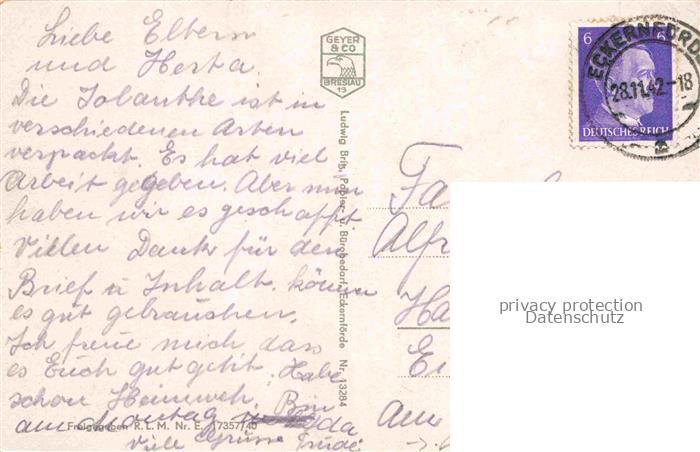 Liebe Eltern
und Herta.
Die Jolanthe ist in
verschiedenen Arten
verpackt. Es hat viel
Arbeit gegeben. Aber nun
haben wir es geschafft.
Vielen Dank für den
Brief u Inhalt. können
es gut gebrauchen.
Ich freue mich, dass
es Euch gut geht. Habe
schon Heimweh. Bin
am Montag da
Viele Grüsse Trude
Freigegeben R. L. M. Nr. E. 17357/40
GEYER
& CO
BRESLAU
13
Ludwig Papier- u. Bürobedarf, Eckernförde Nr. 13284
6 6
DEUTSCHES REICH
ECKERNFÖRDE
28.11.42-18
a
Fa
Alfr
Ha
Ei
am
privacy protection
Datenschutz